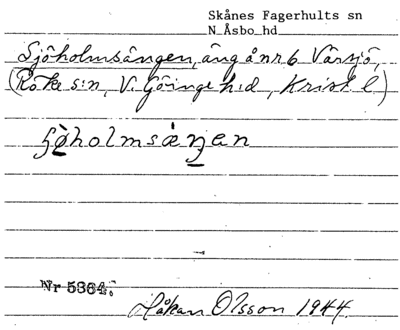 Skånes Fagerhults sn
N Åsbo hd
Sjöholmsängen, äng å nr 6 Värsjö,
(Röke s:n, V. Göinge h:d, Krist. l.)
ʃø̀holmsæ̀ŋən
Nr 5364.
Håkan Olsson 1944.